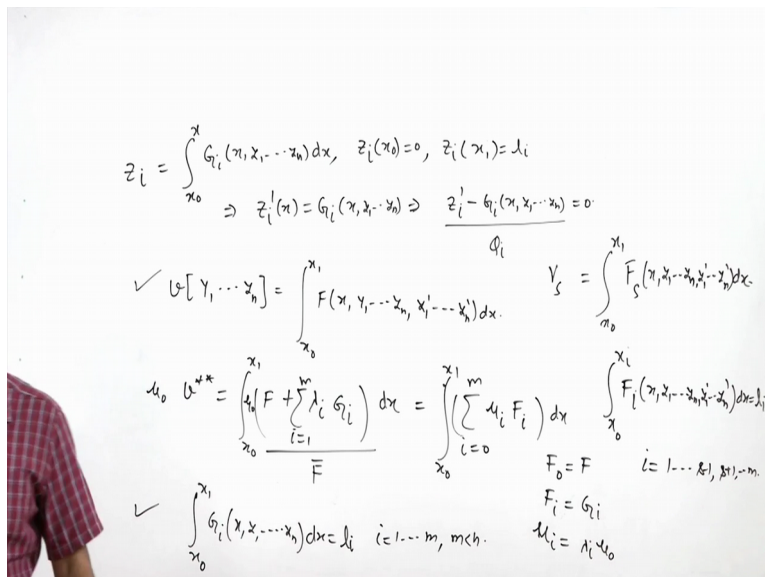 z_i = ∫_{x_0}^{x} G_i(x, y_1 --- y_n) dx, z_i(x_0)=0, z_i(x_1)= l_i
⇒ z_i'(x) = G_i(x, y_1 -- y_n) ⇒ z_i' - G_i(x, y_1 --- y_n) = 0.
Φ_i
✓ v[y_1 --- y_n] = ∫_{x_0}^{x_1} F(x, y_1 --- y_n, y_1' --- y_n') dx.
V_s = ∫_{x_0}^{x_1} F_s(x, y_1 -- y_n, y_1' -- y_n') dx.
μ_0 v** = ∫_{x_0}^{x_1} μ_0(F + Σ_{i=1}^{m} λ_i G_i) dx = ∫_{x_0}^{x_1} (Σ_{i=0}^{m} μ_i F_i) dx
F̄
∫_{x_0}^{x_1} F_i(x, y_1 -- y_n, y_1' -- y_n') dx = l_i
i = 1 --- s-1, s+1, -- m.
F_0 = F
F_i = G_i
μ_i = λ_i μ_0
✓ ∫_{x_0}^{x_1} G_i(x, y_1 ---- y_n) dx = l_i i = 1 --- m, m<n.